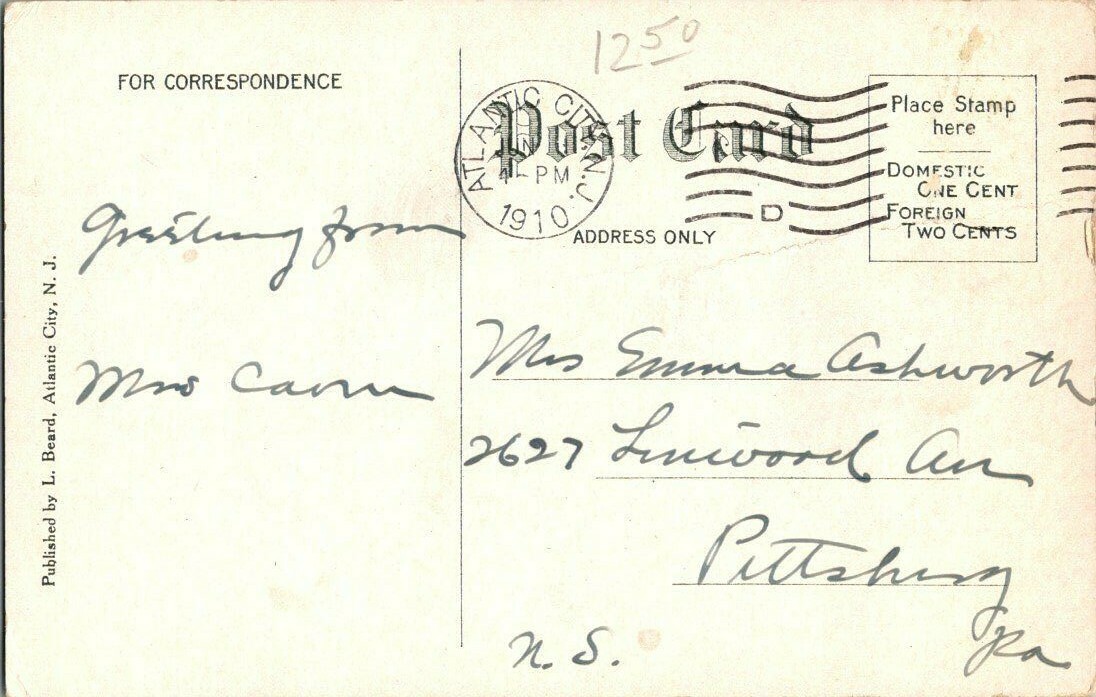 1250
FOR CORRESPONDENCE
Post Card
ATLANTIC CITY, N.J.
PM
1910
D
Place Stamp
here
DOMESTIC
ONE CENT
FOREIGN
TWO CENTS
ADDRESS ONLY
Greeting from
Mrs
Published by L. Beard, Atlantic City, N. J.
Mrs Emma Ashworth
2627 Linwood Av
Pittsburg
Pa
N. S.